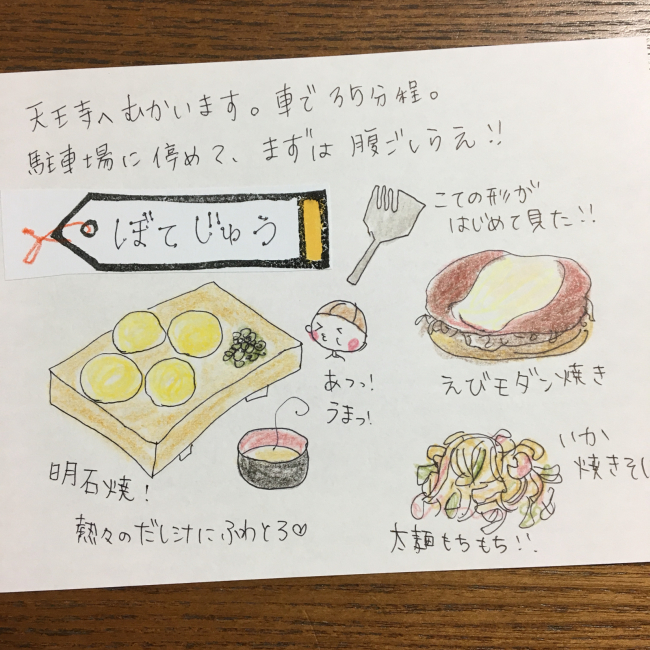 天王寺へむかいます。車で35分程。
駐車場に停めて、まずは 腹ごしらえ!!
ぼてぢゅう
こての形が
はじめて見た!!
あつっ!
うまっ!
えびモダン焼き
明石焼!
熱々のだし汁にふわとろ♡
いか
焼きそ
太麺もちもち!!